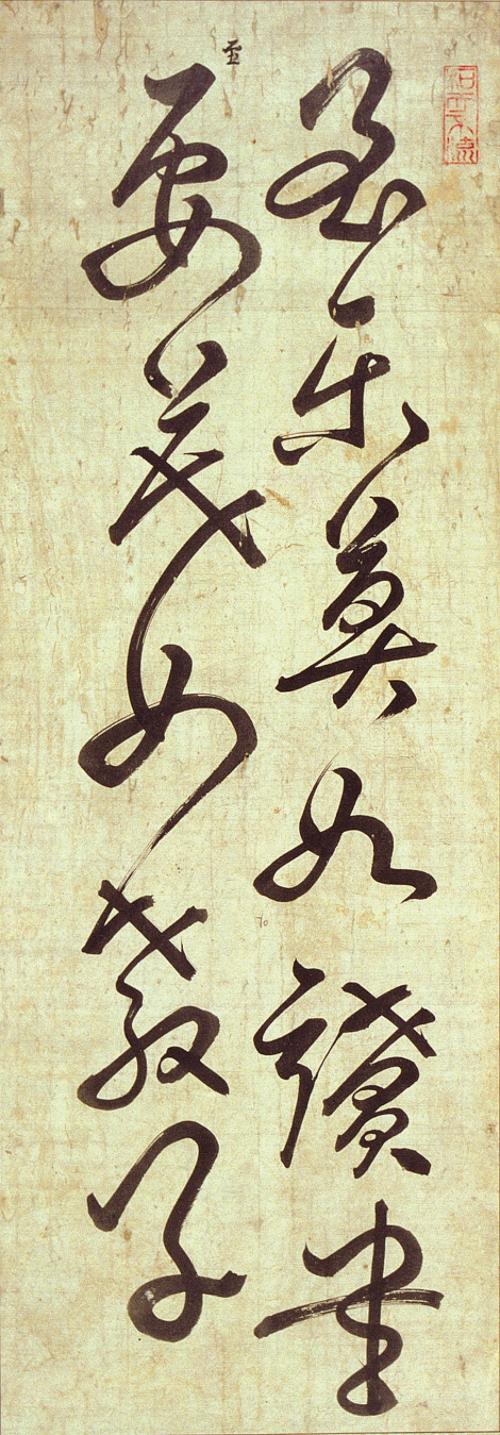 至樂莫如讀書
至要莫如教子